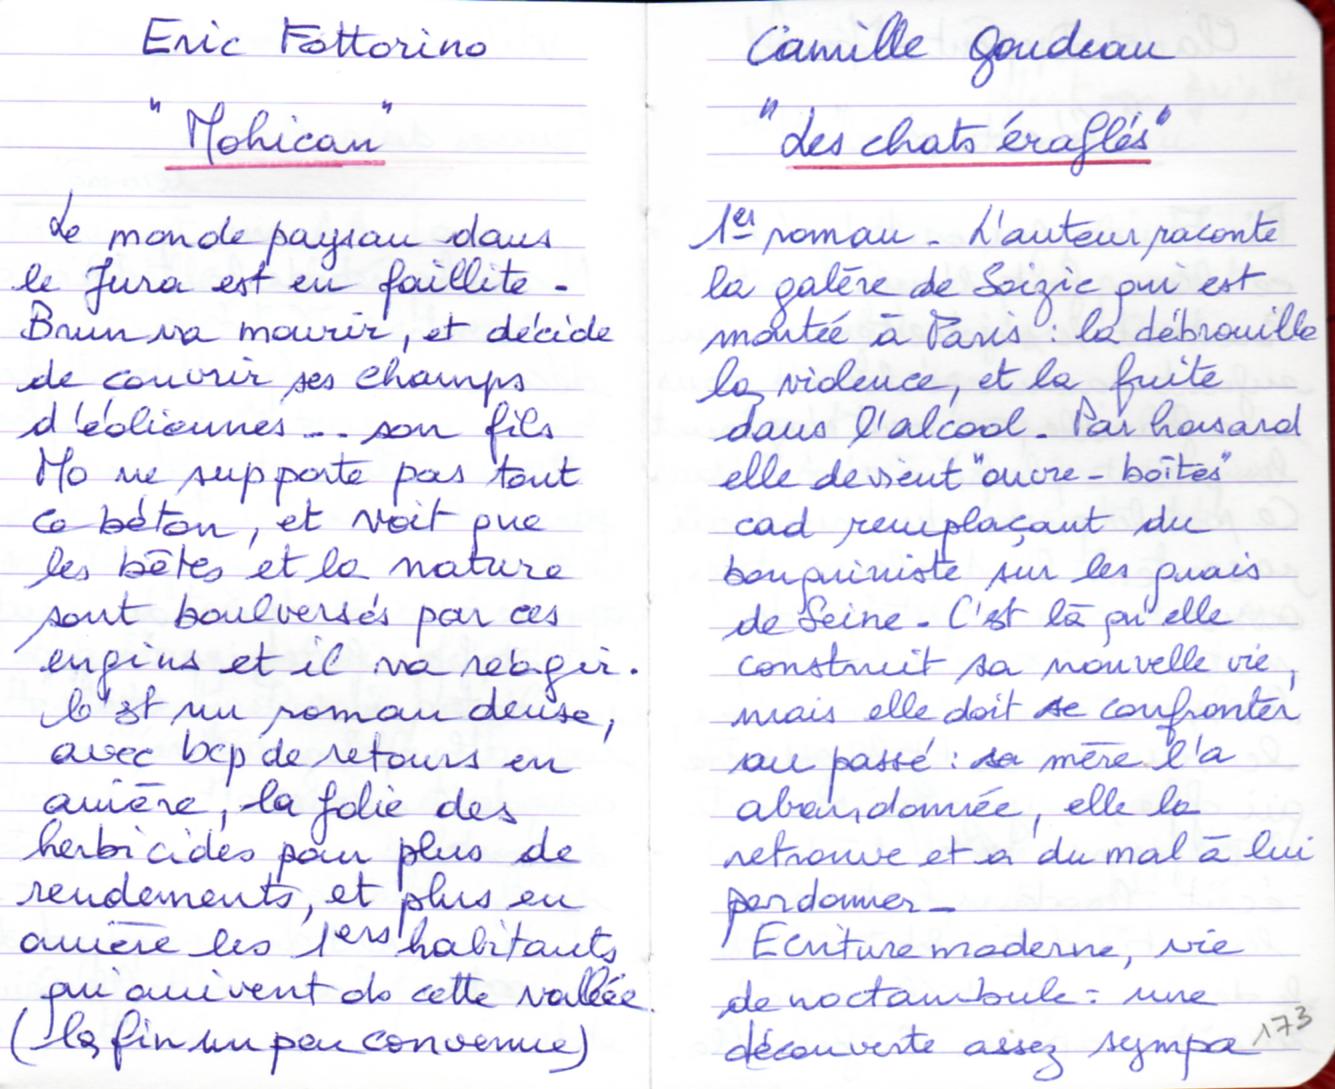 Eric Fottorino
"Mohican"
Le monde paysan dans
le Jura est en faillite -
Brun va mourir, et décide
de couvrir ses champs
d'éoliennes... son fils
Mo ne supporte pas tout
ce béton, et voit que
les bêtes et la nature
sont boulversés par ces
engins et il va réagir.
C'est un roman dense,
avec bcp de retours en
arrière, la folie des
herbicides pour plus de
rendements, et plus en
arrière les 1ers habitants
qui arrivent ds cette vallée
(la fin un peu convenue)
Camille Goudeau
"Les chats éraflés"
1er roman - L'auteur raconte
la galère de Soizic qui est
montée à Paris : la débrouille
la violence, et la fuite
dans l'alcool - Par hasard
elle devient "ouvre-boîtes"
cad remplaçant du
bouquiniste sur les quais
de Seine - C'est là qu'elle
construit sa nouvelle vie,
mais elle doit se confronter
au passé : sa mère l'a
abandonnée, elle la
retrouve et a du mal à lui
pardonner -
Ecriture moderne, vie
de noctambule : une
découverte assez sympa
173